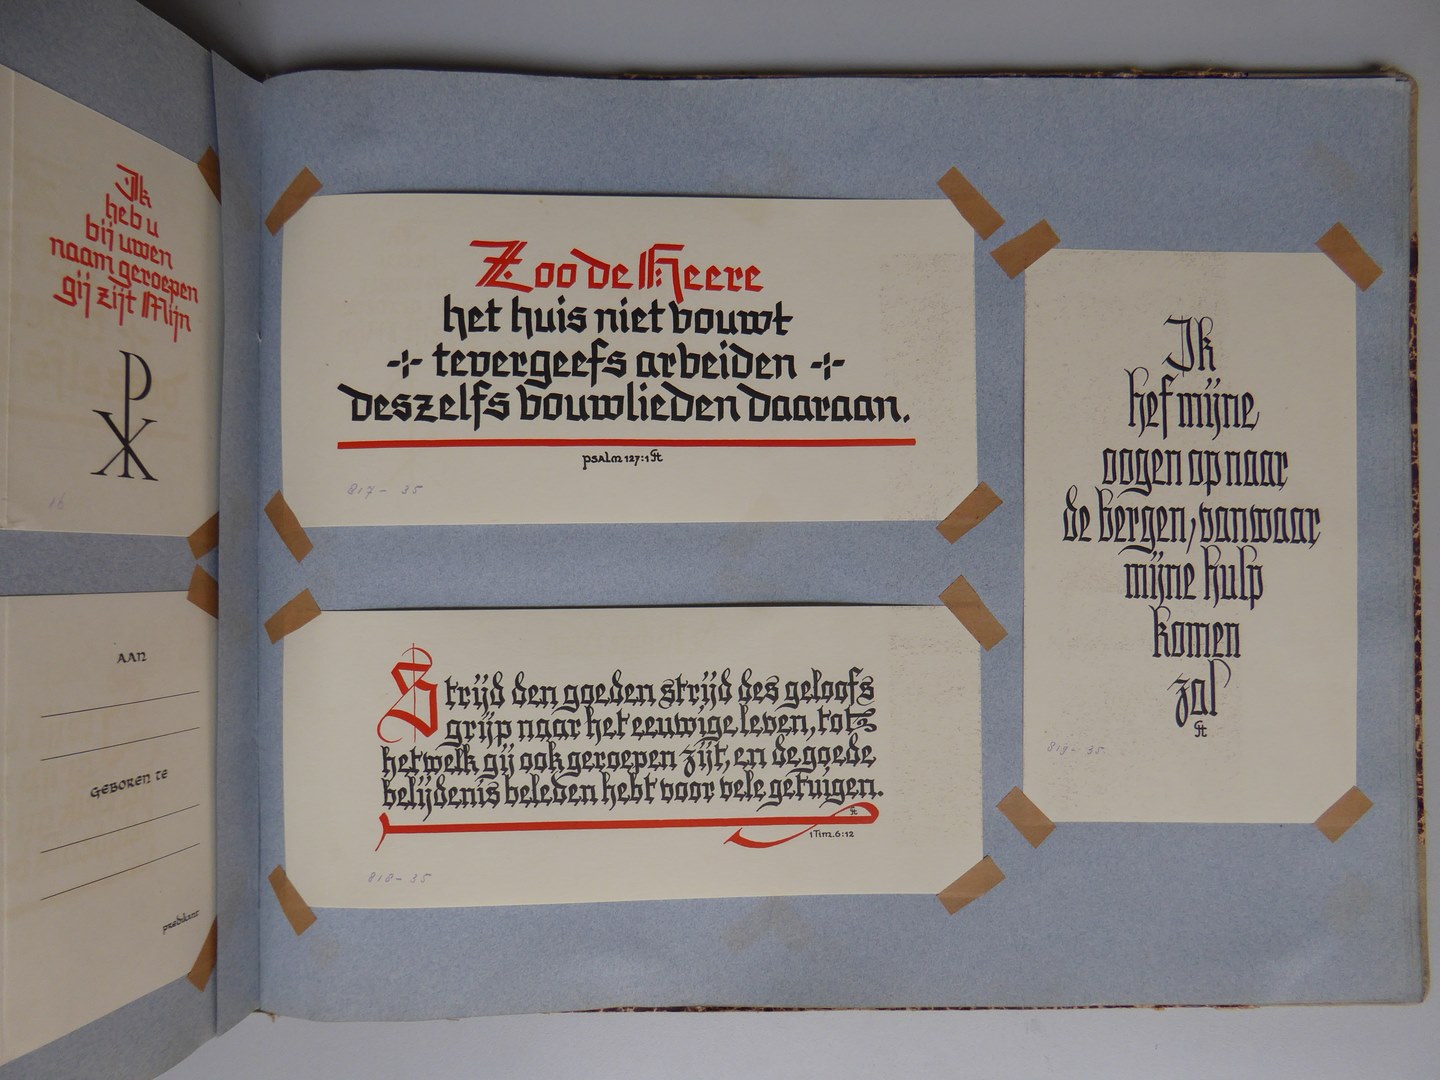 Ik
heb u
bij uwen
naam geroepen
gij zijt Mijn
16
AAN
GEBOREN TE
predikant
Zoo de Heere
het huis niet bouwt
tevergeefs arbeiden
deszelfs bouwlieden daaraan.
psalm 127:1
817-35
Strijd den goeden strijd des geloofs
grijp naar het eeuwige leven, tot
hetwelk gij ook geroepen zijt, en de goede
belijdenis beleden hebt voor vele getuigen.
1 Tim. 6:12
818-35
Ik
hef mijne
oogen op naar
de bergen, vanwaar
mijne hulp
komen
zal
819-35